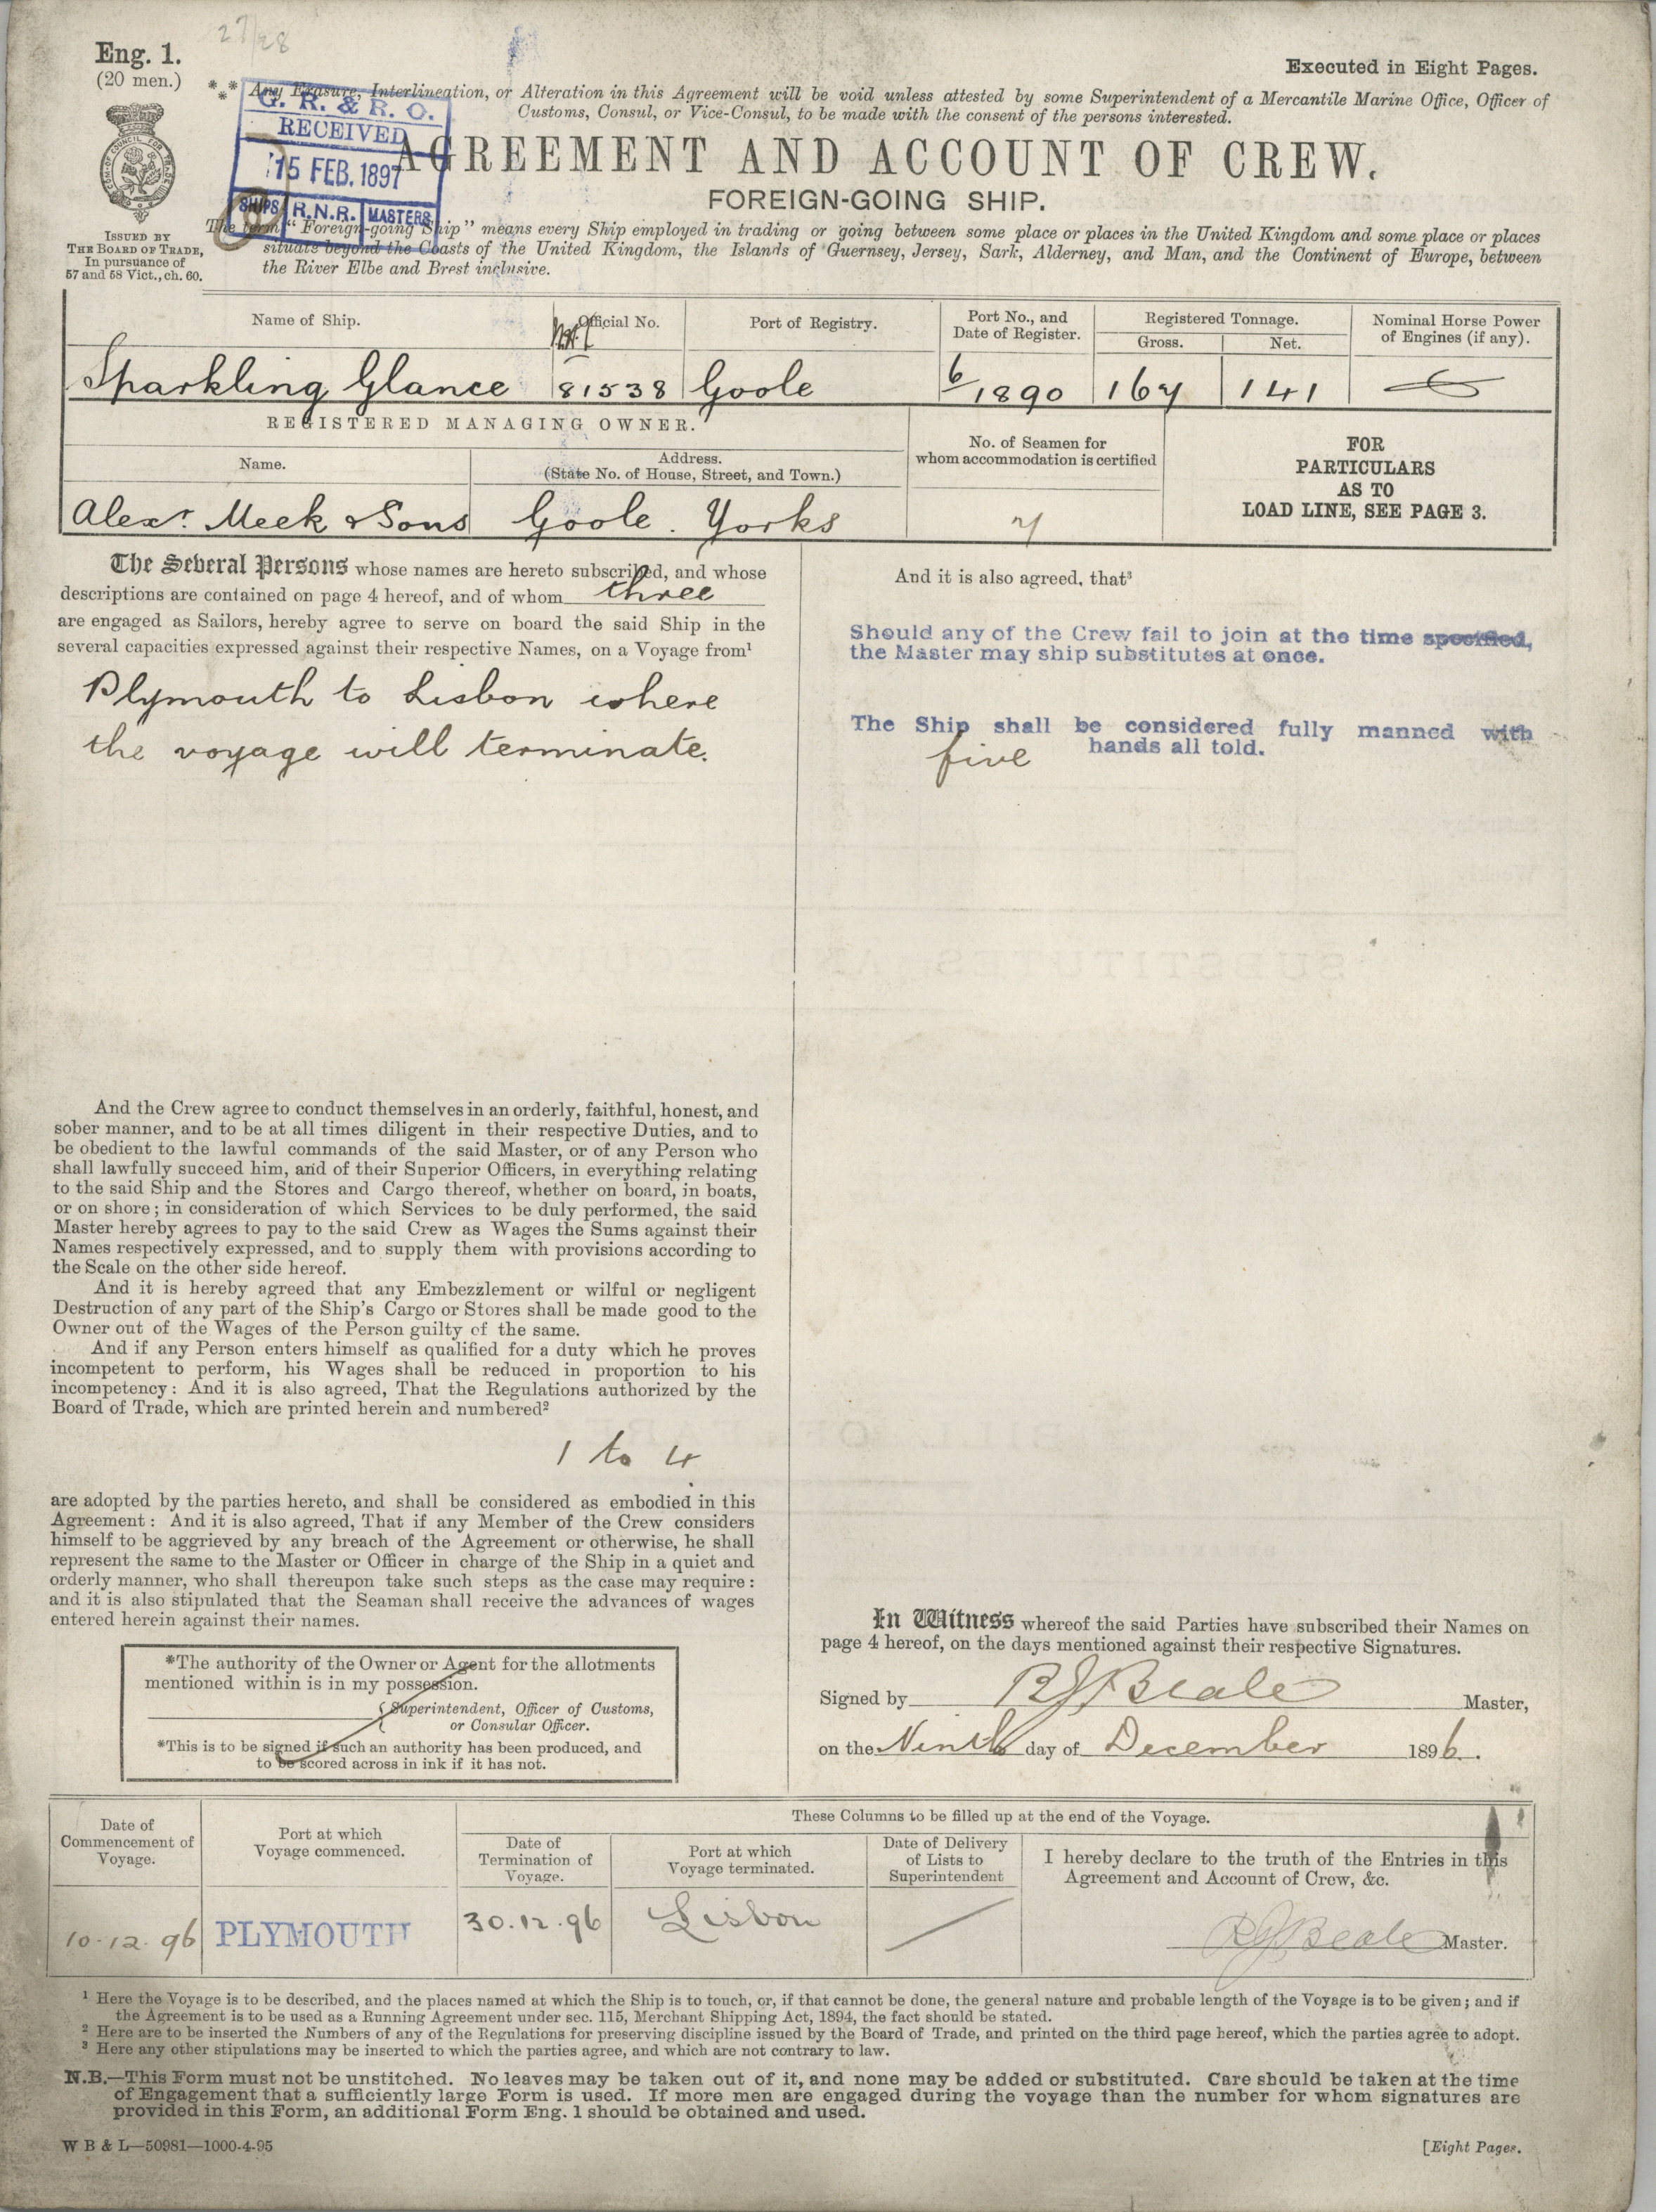 27/28
Eng. 1.
(20 men.)
Executed in Eight Pages.
*** Any Erasure, Interlineation, or Alteration in this Agreement will be void unless attested by some Superintendent of a Mercantile Marine Office, Officer of
Customs, Consul, or Vice-Consul, to be made with the consent of the persons interested.
G. R. & R. O.
RECEIVED
15 FEB. 1897
SHIPS R.N.R. MASTERS
AGREEMENT AND ACCOUNT OF CREW.
FOREIGN-GOING SHIP.
ISSUED BY
THE BOARD OF TRADE,
In pursuance of
57 and 58 Vict., ch. 60.
The term "Foreign-going Ship" means every Ship employed in trading or going between some place or places in the United Kingdom and some place or places
situate beyond the Coasts of the United Kingdom, the Islands of Guernsey, Jersey, Sark, Alderney, and Man, and the Continent of Europe, between
the River Elbe and Brest inclusive.
Name of Ship. Official No. Port of Registry. Port No., and Date of Register. Registered Tonnage. Gross. Net. Nominal Horse Power of Engines (if any).
Sparkling Glance 81538 Goole 6/1890 167 141
REGISTERED MANAGING OWNER.
Name. Address. (State No. of House, Street, and Town.) No. of Seamen for whom accommodation is certified
Alexr. Meek & Sons Goole. Yorks 7
FOR
PARTICULARS
AS TO
LOAD LINE, SEE PAGE 3.
The Several Persons whose names are hereto subscribed, and whose
descriptions are contained on page 4 hereof, and of whom three
are engaged as Sailors, hereby agree to serve on board the said Ship in the
several capacities expressed against their respective Names, on a Voyage from¹
Plymouth to Lisbon where
the voyage will terminate.
And the Crew agree to conduct themselves in an orderly, faithful, honest, and
sober manner, and to be at all times diligent in their respective Duties, and to
be obedient to the lawful commands of the said Master, or of any Person who
shall lawfully succeed him, and of their Superior Officers, in everything relating
to the said Ship and the Stores and Cargo thereof, whether on board, in boats,
or on shore; in consideration of which Services to be duly performed, the said
Master hereby agrees to pay to the said Crew as Wages the Sums against their
Names respectively expressed, and to supply them with provisions according to
the Scale on the other side hereof.
And it is hereby agreed that any Embezzlement or wilful or negligent
Destruction of any part of the Ship's Cargo or Stores shall be made good to the
Owner out of the Wages of the Person guilty of the same.
And if any Person enters himself as qualified for a duty which he proves
incompetent to perform, his Wages shall be reduced in proportion to his
incompetency: And it is also agreed, That the Regulations authorized by the
Board of Trade, which are printed herein and numbered²
1 to 4
are adopted by the parties hereto, and shall be considered as embodied in this
Agreement: And it is also agreed, That if any Member of the Crew considers
himself to be aggrieved by any breach of the Agreement or otherwise, he shall
represent the same to the Master or Officer in charge of the Ship in a quiet and
orderly manner, who shall thereupon take such steps as the case may require:
and it is also stipulated that the Seaman shall receive the advances of wages
entered herein against their names.
*The authority of the Owner or Agent for the allotments
mentioned within is in my possession.
Superintendent, Officer of Customs,
or Consular Officer.
*This is to be signed if such an authority has been produced, and
to be scored across in ink if it has not.
And it is also agreed, that³
Should any of the Crew fail to join at the time specified,
the Master may ship substitutes at once.
The Ship shall be considered fully manned with
five hands all told.
In Witness whereof the said Parties have subscribed their Names on
page 4 hereof, on the days mentioned against their respective Signatures.
Signed by R J Beale Master,
on the Ninth day of December 1896.
Date of Commencement of Voyage. Port at which Voyage commenced. These Columns to be filled up at the end of the Voyage.
Date of Termination of Voyage. Port at which Voyage terminated. Date of Delivery of Lists to Superintendent I hereby declare to the truth of the Entries in this Agreement and Account of Crew, &c.
10-12-96 PLYMOUTH 30.12.96 Lisbon R J Beale Master.
¹ Here the Voyage is to be described, and the places named at which the Ship is to touch, or, if that cannot be done, the general nature and probable length of the Voyage is to be given; and if
the Agreement is to be used as a Running Agreement under sec. 115, Merchant Shipping Act, 1894, the fact should be stated.
² Here are to be inserted the Numbers of any of the Regulations for preserving discipline issued by the Board of Trade, and printed on the third page hereof, which the parties agree to adopt.
³ Here any other stipulations may be inserted to which the parties agree, and which are not contrary to law.
N.B.—This Form must not be unstitched. No leaves may be taken out of it, and none may be added or substituted. Care should be taken at the time
of Engagement that a sufficiently large Form is used. If more men are engaged during the voyage than the number for whom signatures are
provided in this Form, an additional Form Eng. 1 should be obtained and used.
W B & L—50981—1000-4-95
[Eight Pages.